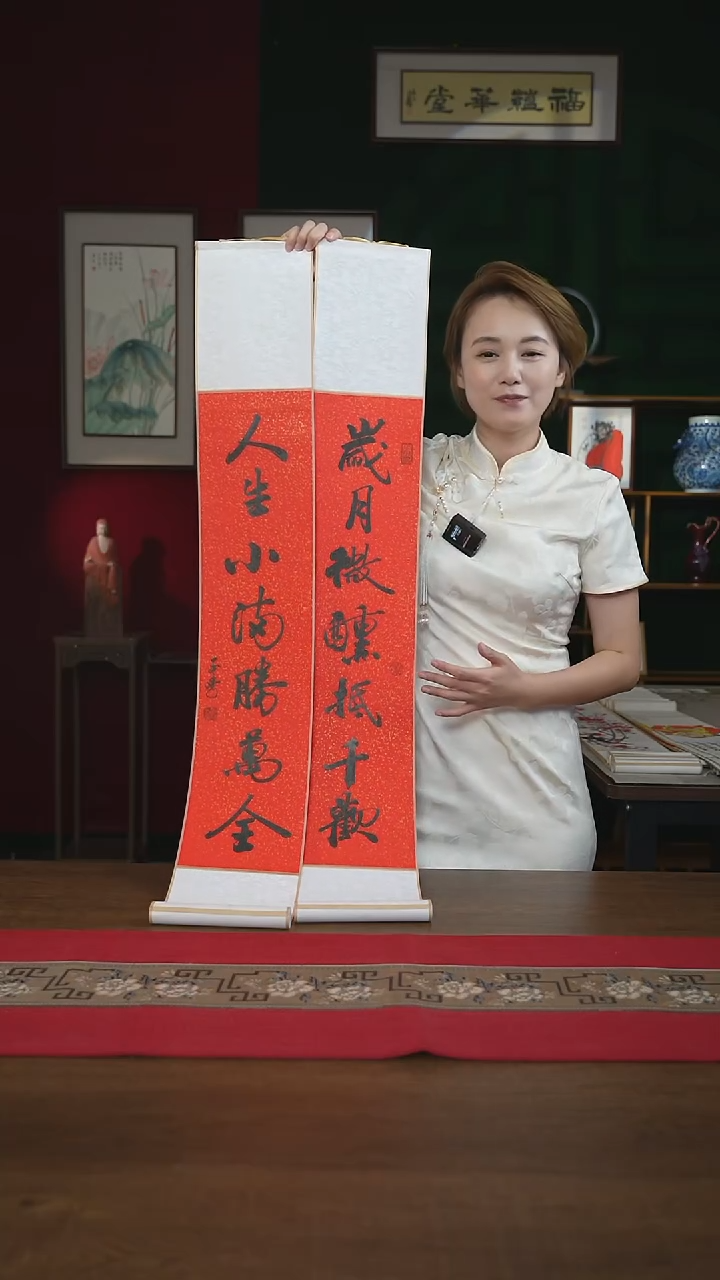 福韞華堂
歲月微醺抵千歡
人生小滿勝萬全